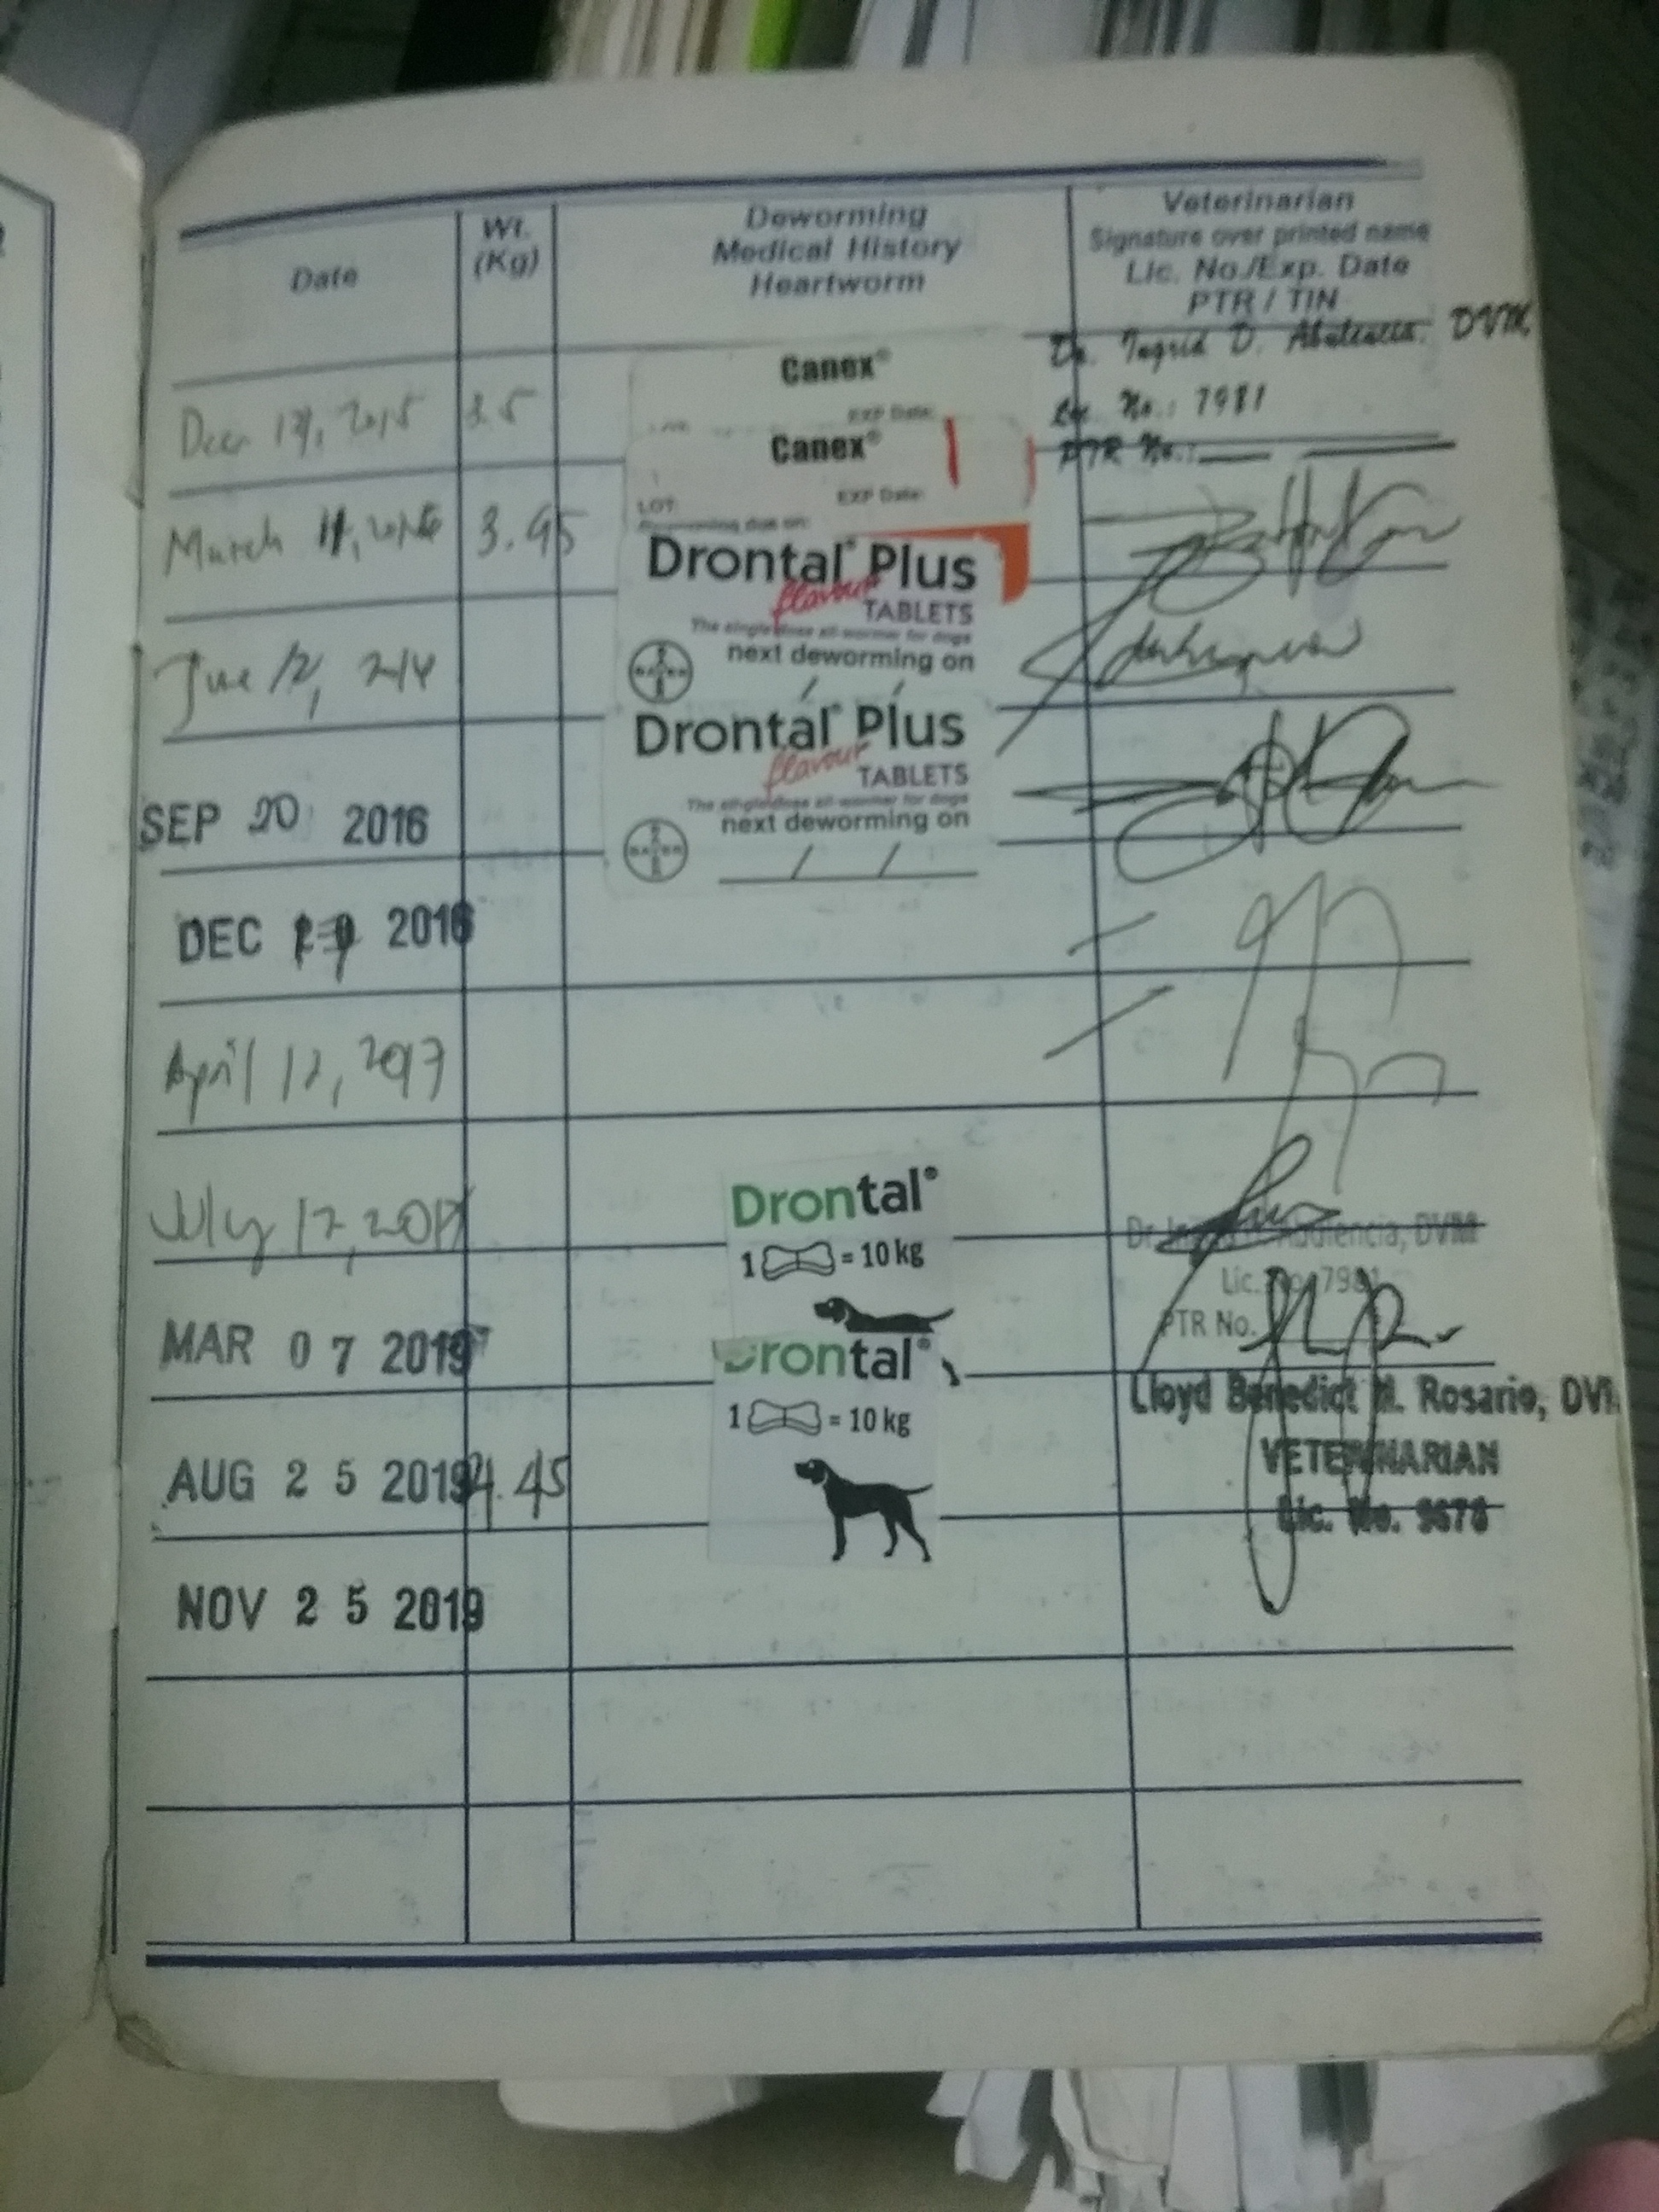 Date
Wt.
(Kg)
Deworming
Medical History
Heartworm
Veterinarian
Signature over printed name
Lic. No./Exp. Date
PTR / TIN
Dr. Ingrid D. DVM
Lic. No.: 7981
PTR No.:
2015
3.5
Canex®
EXP Date:
Canex®
EXP Date:
LOT:
March 11,
3.95
Drontal® Plus
flavour
TABLETS
The single dose all-wormer for dogs
next deworming on
BAYER
/ /
Drontal® Plus
flavour
TABLETS
The single dose all-wormer for dogs
next deworming on
BAYER
/ /
SEP 20 2016
DEC 2016
April 12, 2017
July 17, 2017
Drontal®
1 = 10 kg
Dr. DVM
Lic. No. 7981
PTR No.
MAR 07 2019
Drontal®
1 = 10 kg
Lloyd Benedict H. Rosario, DVM
VETERINARIAN
Lic. No. 9678
AUG 25 2019
4.45
NOV 25 2019